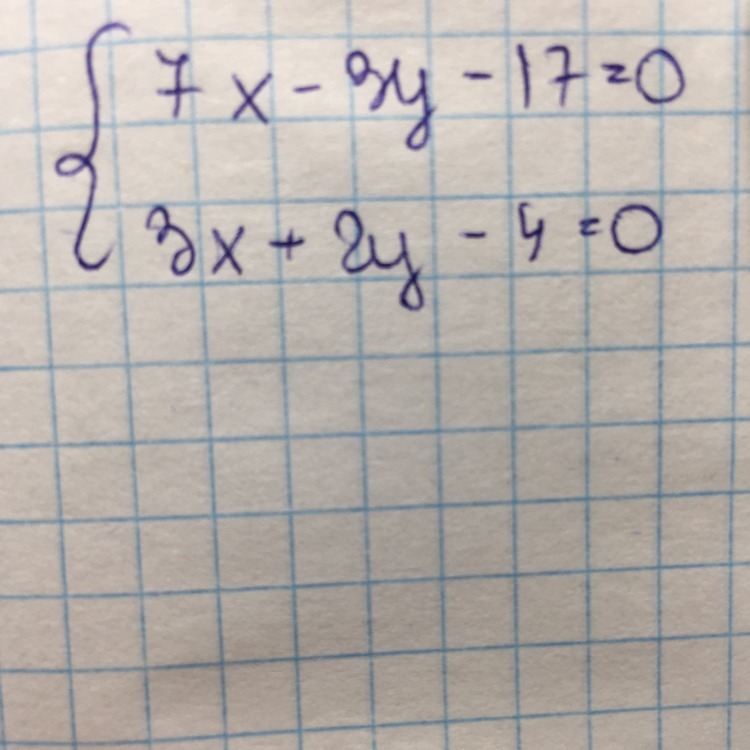 7x - 3y - 17 = 0
3x + 2y - 4 = 0